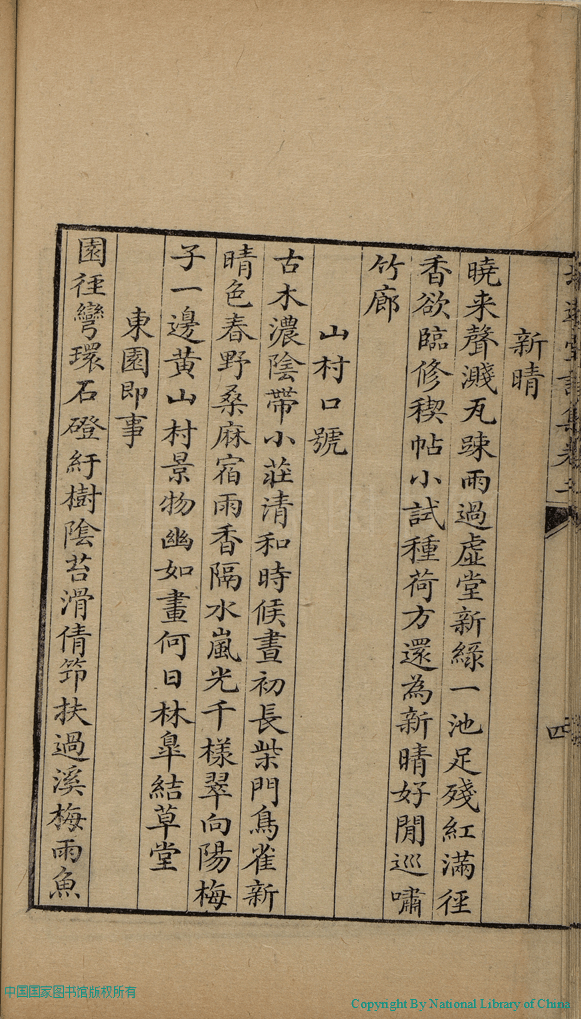 新晴
曉来聲濺瓦踈雨過虛堂新綠一池足殘紅滿徑
香欲臨修稧帖小試種荷方還為新晴好閒巡嘯
竹廊
山村口號
古木濃陰帶小莊清和時候晝初長柴門鳥雀新
晴色春野桑麻宿雨香隔水嵐光千樣翠向陽梅
子一邊黃山村景物幽如畫何日林皐結草堂
東園即事
園徑彎環石磴紆樹陰苔滑倩筇扶過溪梅雨魚
四
中国国家图书馆版权所有
Copyright By National Library of China